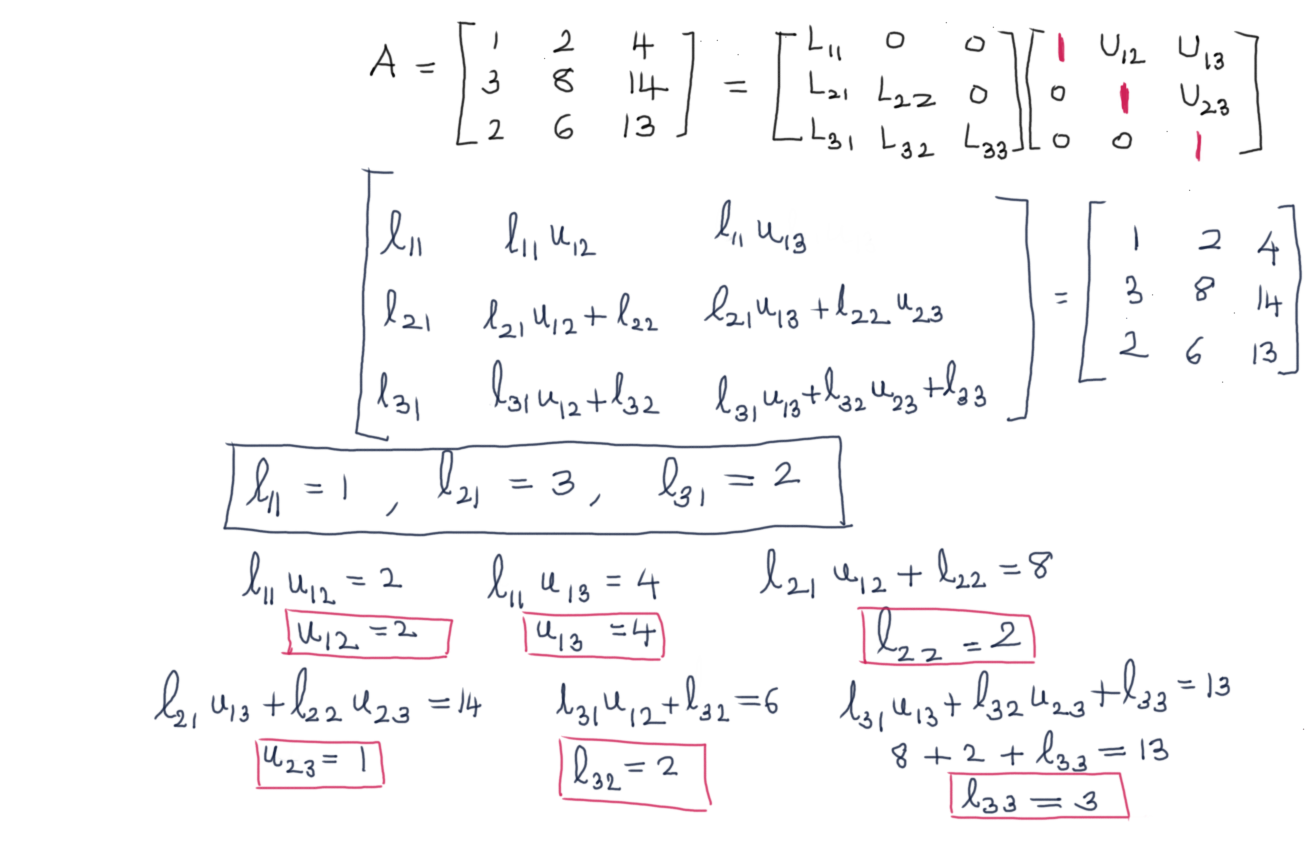 A = [ 1 2 4 ; 3 8 14 ; 2 6 13 ] = [ L₁₁ 0 0 ; L₂₁ L₂₂ 0 ; L₃₁ L₃₂ L₃₃ ] [ 1 U₁₂ U₁₃ ; 0 1 U₂₃ ; 0 0 1 ]
[ l₁₁ l₁₁ u₁₂ l₁₁ u₁₃ ; l₂₁ l₂₁ u₁₂ + l₂₂ l₂₁ u₁₃ + l₂₂ u₂₃ ; l₃₁ l₃₁ u₁₂ + l₃₂ l₃₁ u₁₃ + l₃₂ u₂₃ + l₃₃ ] = [ 1 2 4 ; 3 8 14 ; 2 6 13 ]
l₁₁ = 1 , l₂₁ = 3 , l₃₁ = 2
l₁₁ u₁₂ = 2 l₁₁ u₁₃ = 4 l₂₁ u₁₂ + l₂₂ = 8
u₁₂ = 2 u₁₃ = 4 l₂₂ = 2
l₂₁ u₁₃ + l₂₂ u₂₃ = 14 l₃₁ u₁₂ + l₃₂ = 6 l₃₁ u₁₃ + l₃₂ u₂₃ + l₃₃ = 13
8 + 2 + l₃₃ = 13
u₂₃ = 1 l₃₂ = 2 l₃₃ = 3